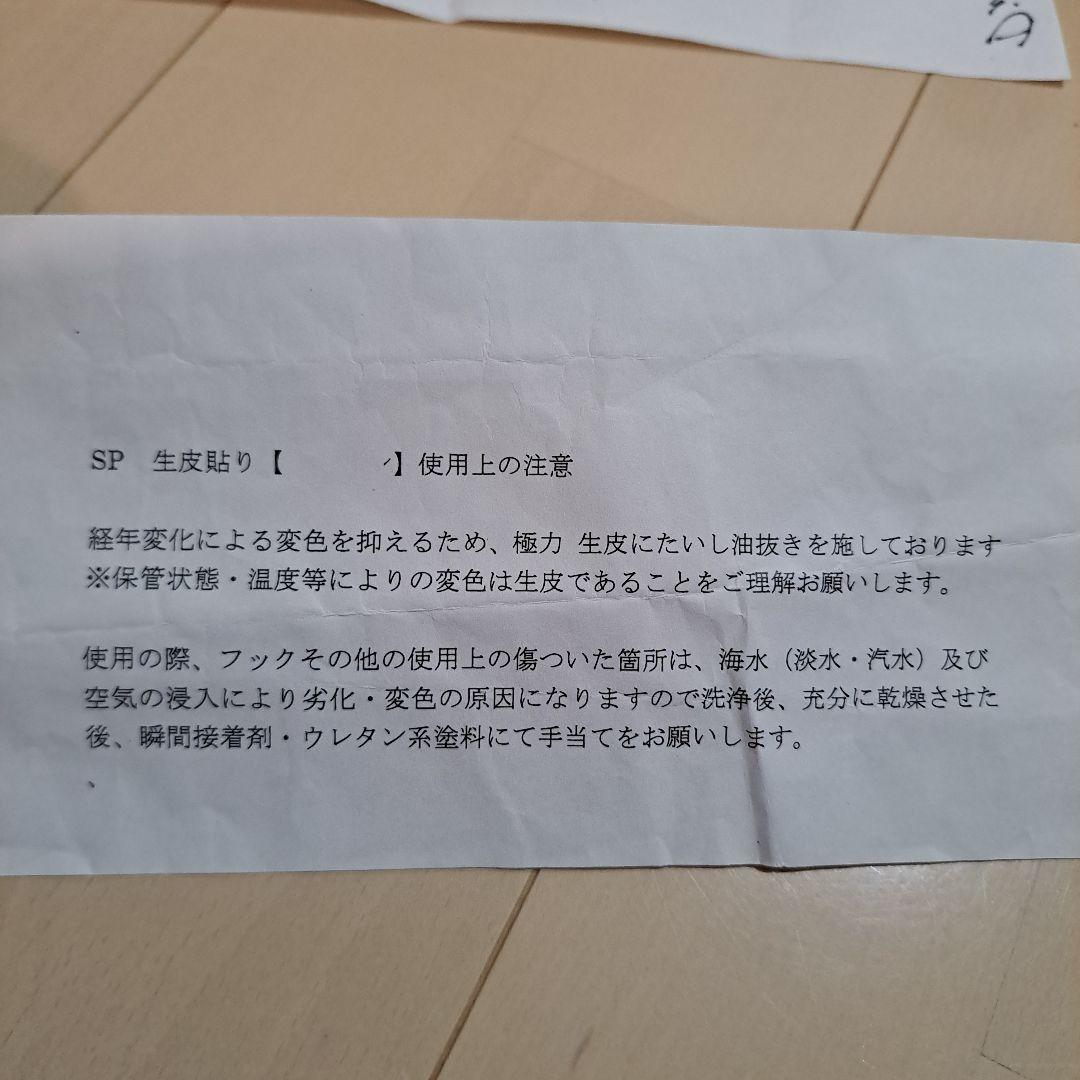 SP　生皮貼り【　　　　】使用上の注意
経年変化による変色を抑えるため、極力 生皮にたいし油抜きを施しております
※保管状態・温度等によりの変色は生皮であることをご理解お願いします。
使用の際、フックその他の使用上の傷ついた箇所は、海水（淡水・汽水）及び
空気の浸入により劣化・変色の原因になりますので洗浄後、充分に乾燥させた
後、瞬間接着剤・ウレタン系塗料にて手当てをお願いします。
、